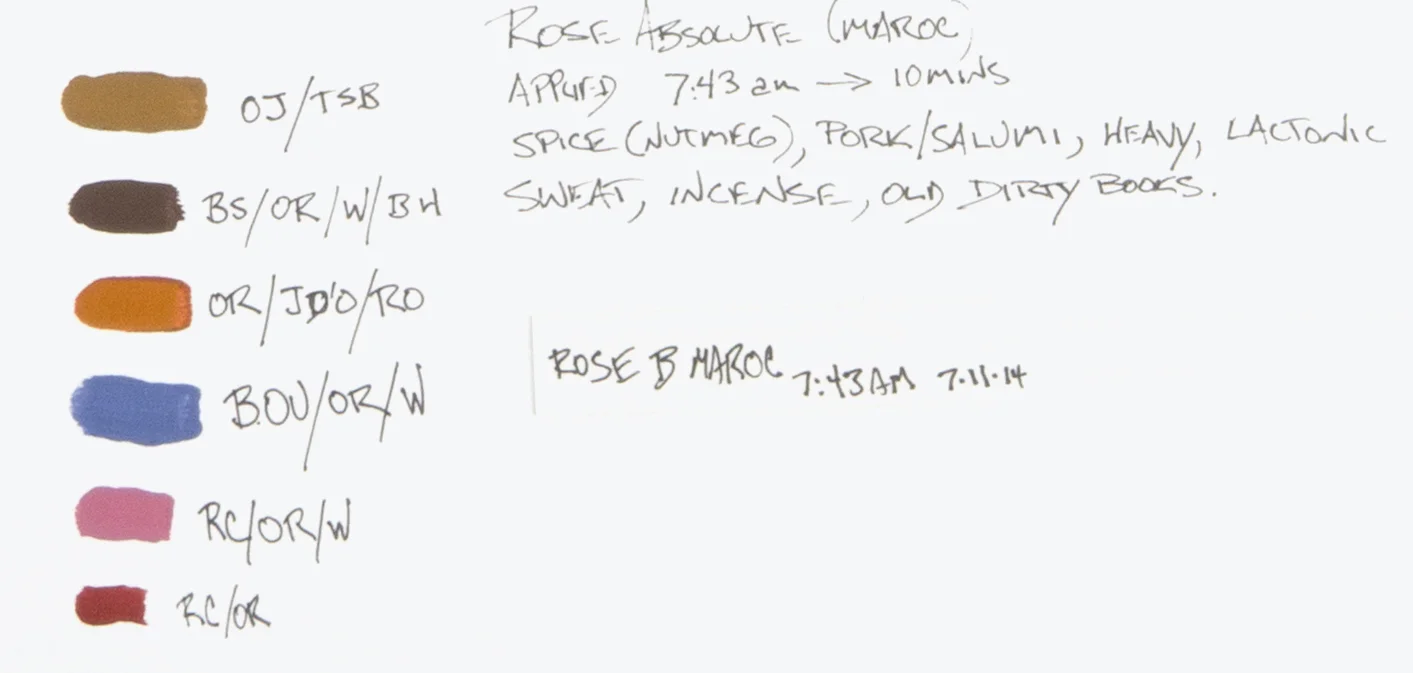 ROSE ABSOLUTE (MAROC)
APPLIED 7:43 am → 10 MINS
SPICE (NUTMEG), PORK/SALUMI, HEAVY, LACTONIC
SWEAT, INCENSE, OLD DIRTY BOOKS.
OJ/TSB
BS/OR/W/BH
OR/JD'O/RO
B.OU/OR/W
RC/OR/W
RC/OR
ROSE B MAROC 7:43 AM 7.11.14